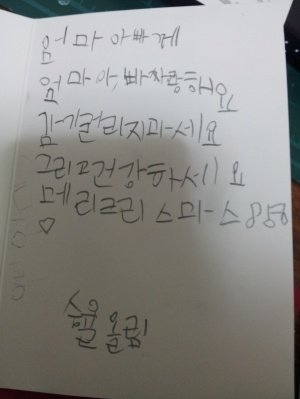 엄마아빠께
엄마아빠사랑해요
감기걸리지마세요
그리고건강하세요
메리크리스마스
♡
올림